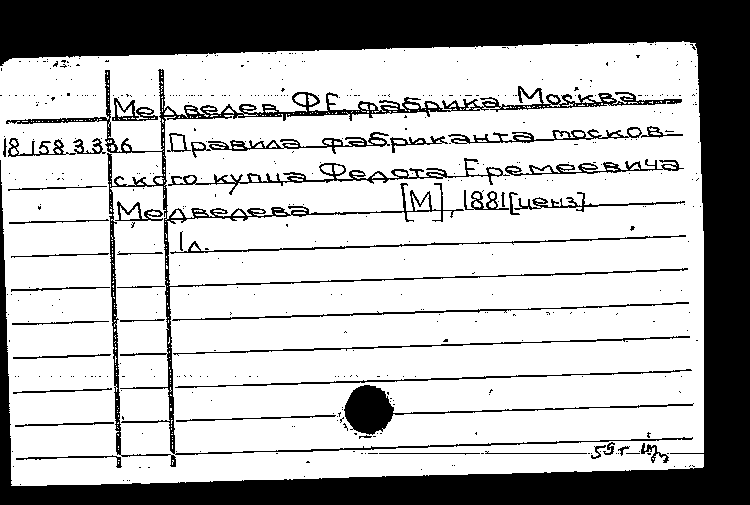 Медведев, ФЕ, фабрика. Москва
18.158.3.336 Правила фабриканта москов-
ского купца Федота Еремеевича
Медведева. [М], 1881[ценз].
1л.
59г